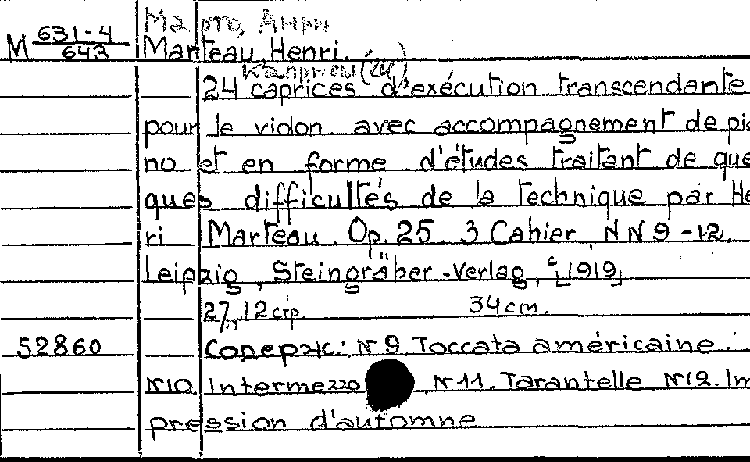 Марто, Анри
M 631-4/643 Marteau, Henri.
Каприсы (24)
24 caprices d'exécution transcendante
pour le violon avec accompagnement de pia
no et en forme d'études traitant de quel
ques difficultés de la technique par He
ri Marteau. Op. 25. 3 Cahier NN 9-12.
Leipzig, Steingräber-Verlag, [c 1919]
27, 12 стр. 34 cm.
52860 Содерж: N 9. Toccata américaine.
N10. Intermezzo N 11. Tarantelle N12. Im
pression d'automne